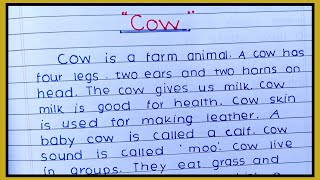 "Cow"
Cow is a farm animal. A cow has
four legs . two ears and two horns on
head. The cow gives us milk. Cow
milk is good for health. Cow skin
is used for making leather. A
baby cow is called a calf. Cow
sound is called 'moo'. Cow live
in groups. They eat grass and